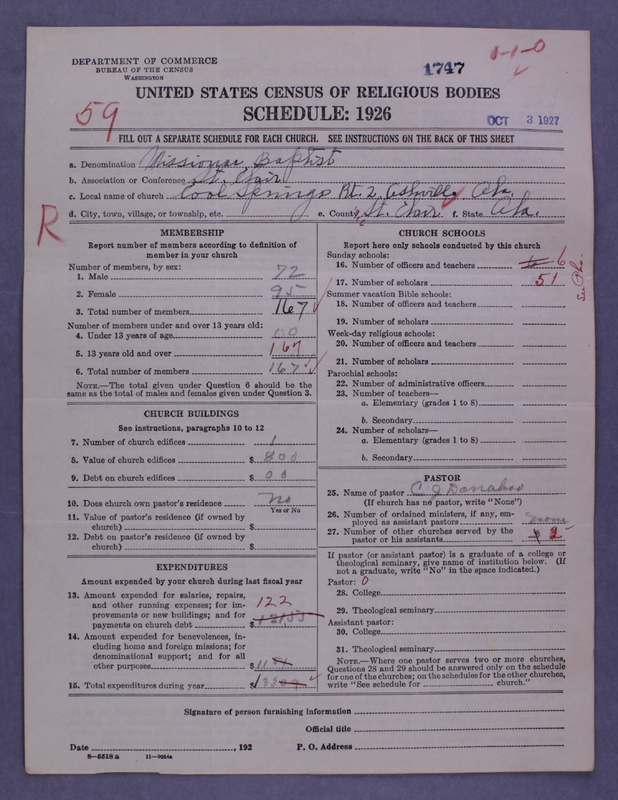 DEPARTMENT OF COMMERCE
BUREAU OF THE CENSUS
WASHINGTON
1747
1-1-0
UNITED STATES CENSUS OF RELIGIOUS BODIES
59
SCHEDULE: 1926
OCT 3 1927
FILL OUT A SEPARATE SCHEDULE FOR EACH CHURCH. SEE INSTRUCTIONS ON THE BACK OF THIS SHEET
a. Denomination Missionar Baptist
b. Association or Conference St. Clair
c. Local name of church Cool Springs Rt. 2, Ashville Ala.
d. City, town, village, or township, etc. e. County St. Clair f. State Ala.
R
MEMBERSHIP
Report number of members according to definition of
member in your church
Number of members, by sex:
1. Male 72
2. Female 95
3. Total number of members 167
Number of members under and over 13 years old:
4. Under 13 years of age 00
5. 13 years old and over 167
6. Total number of members 167
NOTE.—The total given under Question 6 should be the
same as the total of males and females given under Question 3.
CHURCH BUILDINGS
See instructions, paragraphs 10 to 12
7. Number of church edifices 1
8. Value of church edifices $ 800
9. Debt on church edifices $ 00
10. Does church own pastor's residence No
Yes or No
11. Value of pastor's residence (if owned by
church) $
12. Debt on pastor's residence (if owned by
church) $
EXPENDITURES
Amount expended by your church during last fiscal year
13. Amount expended for salaries, repairs,
and other running expenses; for im-
provements or new buildings; and for
payments on church debt $ 122
14. Amount expended for benevolences, in-
cluding home and foreign missions; for
denominational support; and for all
other purposes $ 11
15. Total expenditures during year $ 133
CHURCH SCHOOLS
Report here only schools conducted by this church
Sunday schools:
16. Number of officers and teachers 6
17. Number of scholars 51
See
Summer vacation Bible schools:
18. Number of officers and teachers
19. Number of scholars
Week-day religious schools:
20. Number of officers and teachers
21. Number of scholars
Parochial schools:
22. Number of administrative officers
23. Number of teachers—
a. Elementary (grades 1 to 8)
b. Secondary
24. Number of scholars—
a. Elementary (grades 1 to 8)
b. Secondary
PASTOR
25. Name of pastor C J Donahoo
(If church has no pastor, write "None")
26. Number of ordained ministers, if any, em-
ployed as assistant pastors none
27. Number of other churches served by the
pastor or his assistants 2
If pastor (or assistant pastor) is a graduate of a college or
theological seminary, give name of institution below. (If
not a graduate, write "No" in the space indicated.)
Pastor: 0
28. College
29. Theological seminary
Assistant pastor:
30. College
31. Theological seminary
NOTE.—Where one pastor serves two or more churches,
Questions 28 and 29 should be answered only on the schedule
for one of the churches; on the schedules for the other churches,
write "See schedule for church."
Signature of person furnishing information
Official title
Date , 192 P. O. Address
8—5518 a 11—9034a